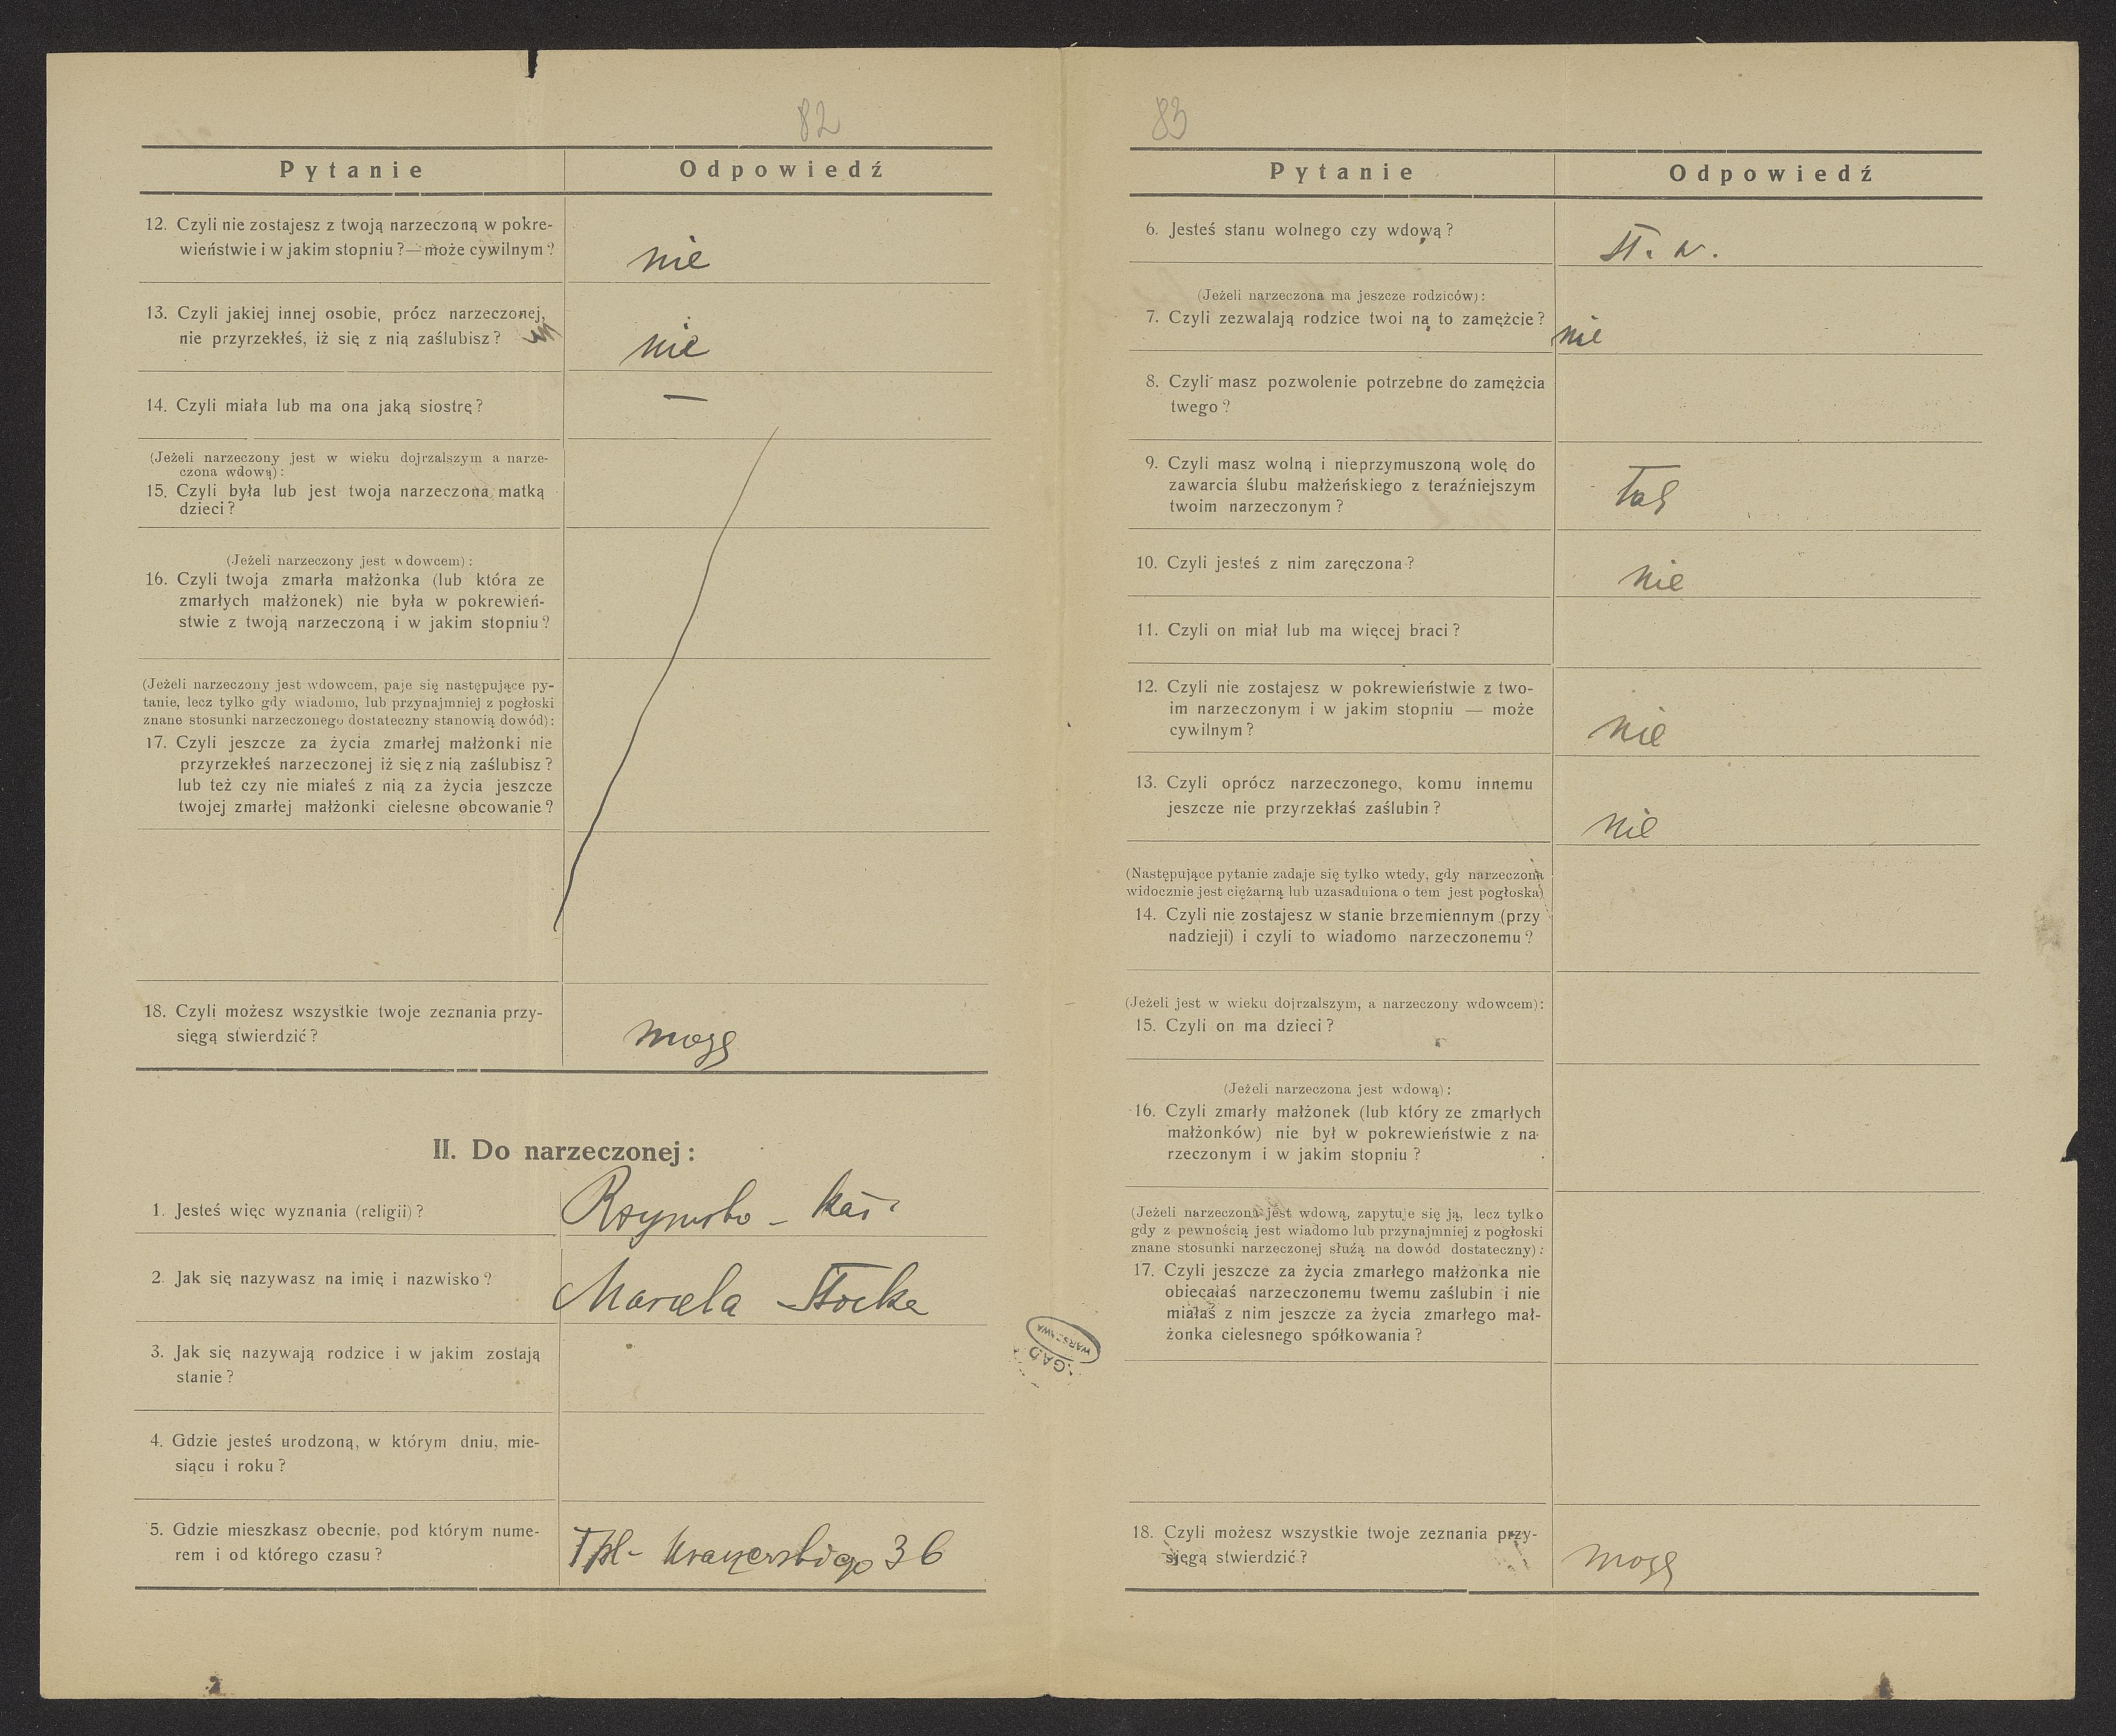 82
Pytanie Odpowiedź
12. Czyli nie zostajesz z twoją narzeczoną w pokre-
wieństwie i w jakim stopniu?—może cywilnym?
nie
13. Czyli jakiej innej osobie, prócz narzeczonej,
nie przyrzekłeś, iż się z nią zaślubisz?
nie
14. Czyli miała lub ma ona jaką siostrę?
—
(Jeżeli narzeczony jest w wieku dojrzalszym a narze-
czona wdową):
15. Czyli była lub jest twoja narzeczona matką
dzieci?
(Jeżeli narzeczony jest wdowcem):
16. Czyli twoja zmarła małżonka (lub która ze
zmarłych małżonek) nie była w pokrewień-
stwie z twoją narzeczoną i w jakim stopniu?
(Jeżeli narzeczony jest wdowcem, paje się następujące py-
tanie, lecz tylko gdy wiadomo, lub przynajmniej z pogłoski
znane stosunki narzeczonego dostateczny stanowią dowód):
17. Czyli jeszcze za życia zmarłej małżonki nie
przyrzekłeś narzeczonej iż się z nią zaślubisz?
lub też czy nie miałeś z nią za życia jeszcze
twojej zmarłej małżonki cielesne obcowanie?
18. Czyli możesz wszystkie twoje zeznania przy-
sięgą stwierdzić?
mogę
II. Do narzeczonej:
1. Jesteś więc wyznania (religii)?
Rzymsko - kat.
2. Jak się nazywasz na imię i nazwisko?
Marcela
3. Jak się nazywają rodzice i w jakim zostają
stanie?
4. Gdzie jesteś urodzoną, w którym dniu, mie-
siącu i roku?
5. Gdzie mieszkasz obecnie, pod którym nume-
rem i od którego czasu?
36
AGAD
WARSZAWA
83
Pytanie Odpowiedź
6. Jesteś stanu wolnego czy wdową?
st. w.
(Jeżeli narzeczona ma jeszcze rodziców):
7. Czyli zezwalają rodzice twoi na to zamężcie?
nie
8. Czyli masz pozwolenie potrzebne do zamężcia
twego?
9. Czyli masz wolną i nieprzymuszoną wolę do
zawarcia ślubu małżeńskiego z teraźniejszym
twoim narzeczonym?
tak
10. Czyli jesteś z nim zaręczona?
nie
11. Czyli on miał lub ma więcej braci?
12. Czyli nie zostajesz w pokrewieństwie z two-
im narzeczonym i w jakim stopniu — może
cywilnym?
nie
13. Czyli oprócz narzeczonego, komu innemu
jeszcze nie przyrzekłaś zaślubin?
nie
(Następujące pytanie zadaje się tylko wtedy, gdy narzeczona
widocznie jest ciężarną lub uzasadniona o tem jest pogłoska)
14. Czyli nie zostajesz w stanie brzemiennym (przy
nadzieji) i czyli to wiadomo narzeczonemu?
(Jeżeli jest w wieku dojrzalszym, a narzeczony wdowcem):
15. Czyli on ma dzieci?
(Jeżeli narzeczona jest wdową):
16. Czyli zmarły małżonek (lub który ze zmarłych
małżonków) nie był w pokrewieństwie z na-
rzeczonym i w jakim stopniu?
(Jeżeli narzeczona jest wdową, zapytuje się ją, lecz tylko
gdy z pewnością jest wiadomo lub przynajmniej z pogłoski
znane stosunki narzeczonej służą na dowód dostateczny):
17. Czyli jeszcze za życia zmarłego małżonka nie
obiecałaś narzeczonemu twemu zaślubin i nie
miałaś z nim jeszcze za życia zmarłego mał-
żonka cielesnego spółkowania?
18. Czyli możesz wszystkie twoje zeznania przy-
sięgą stwierdzić?
mogę